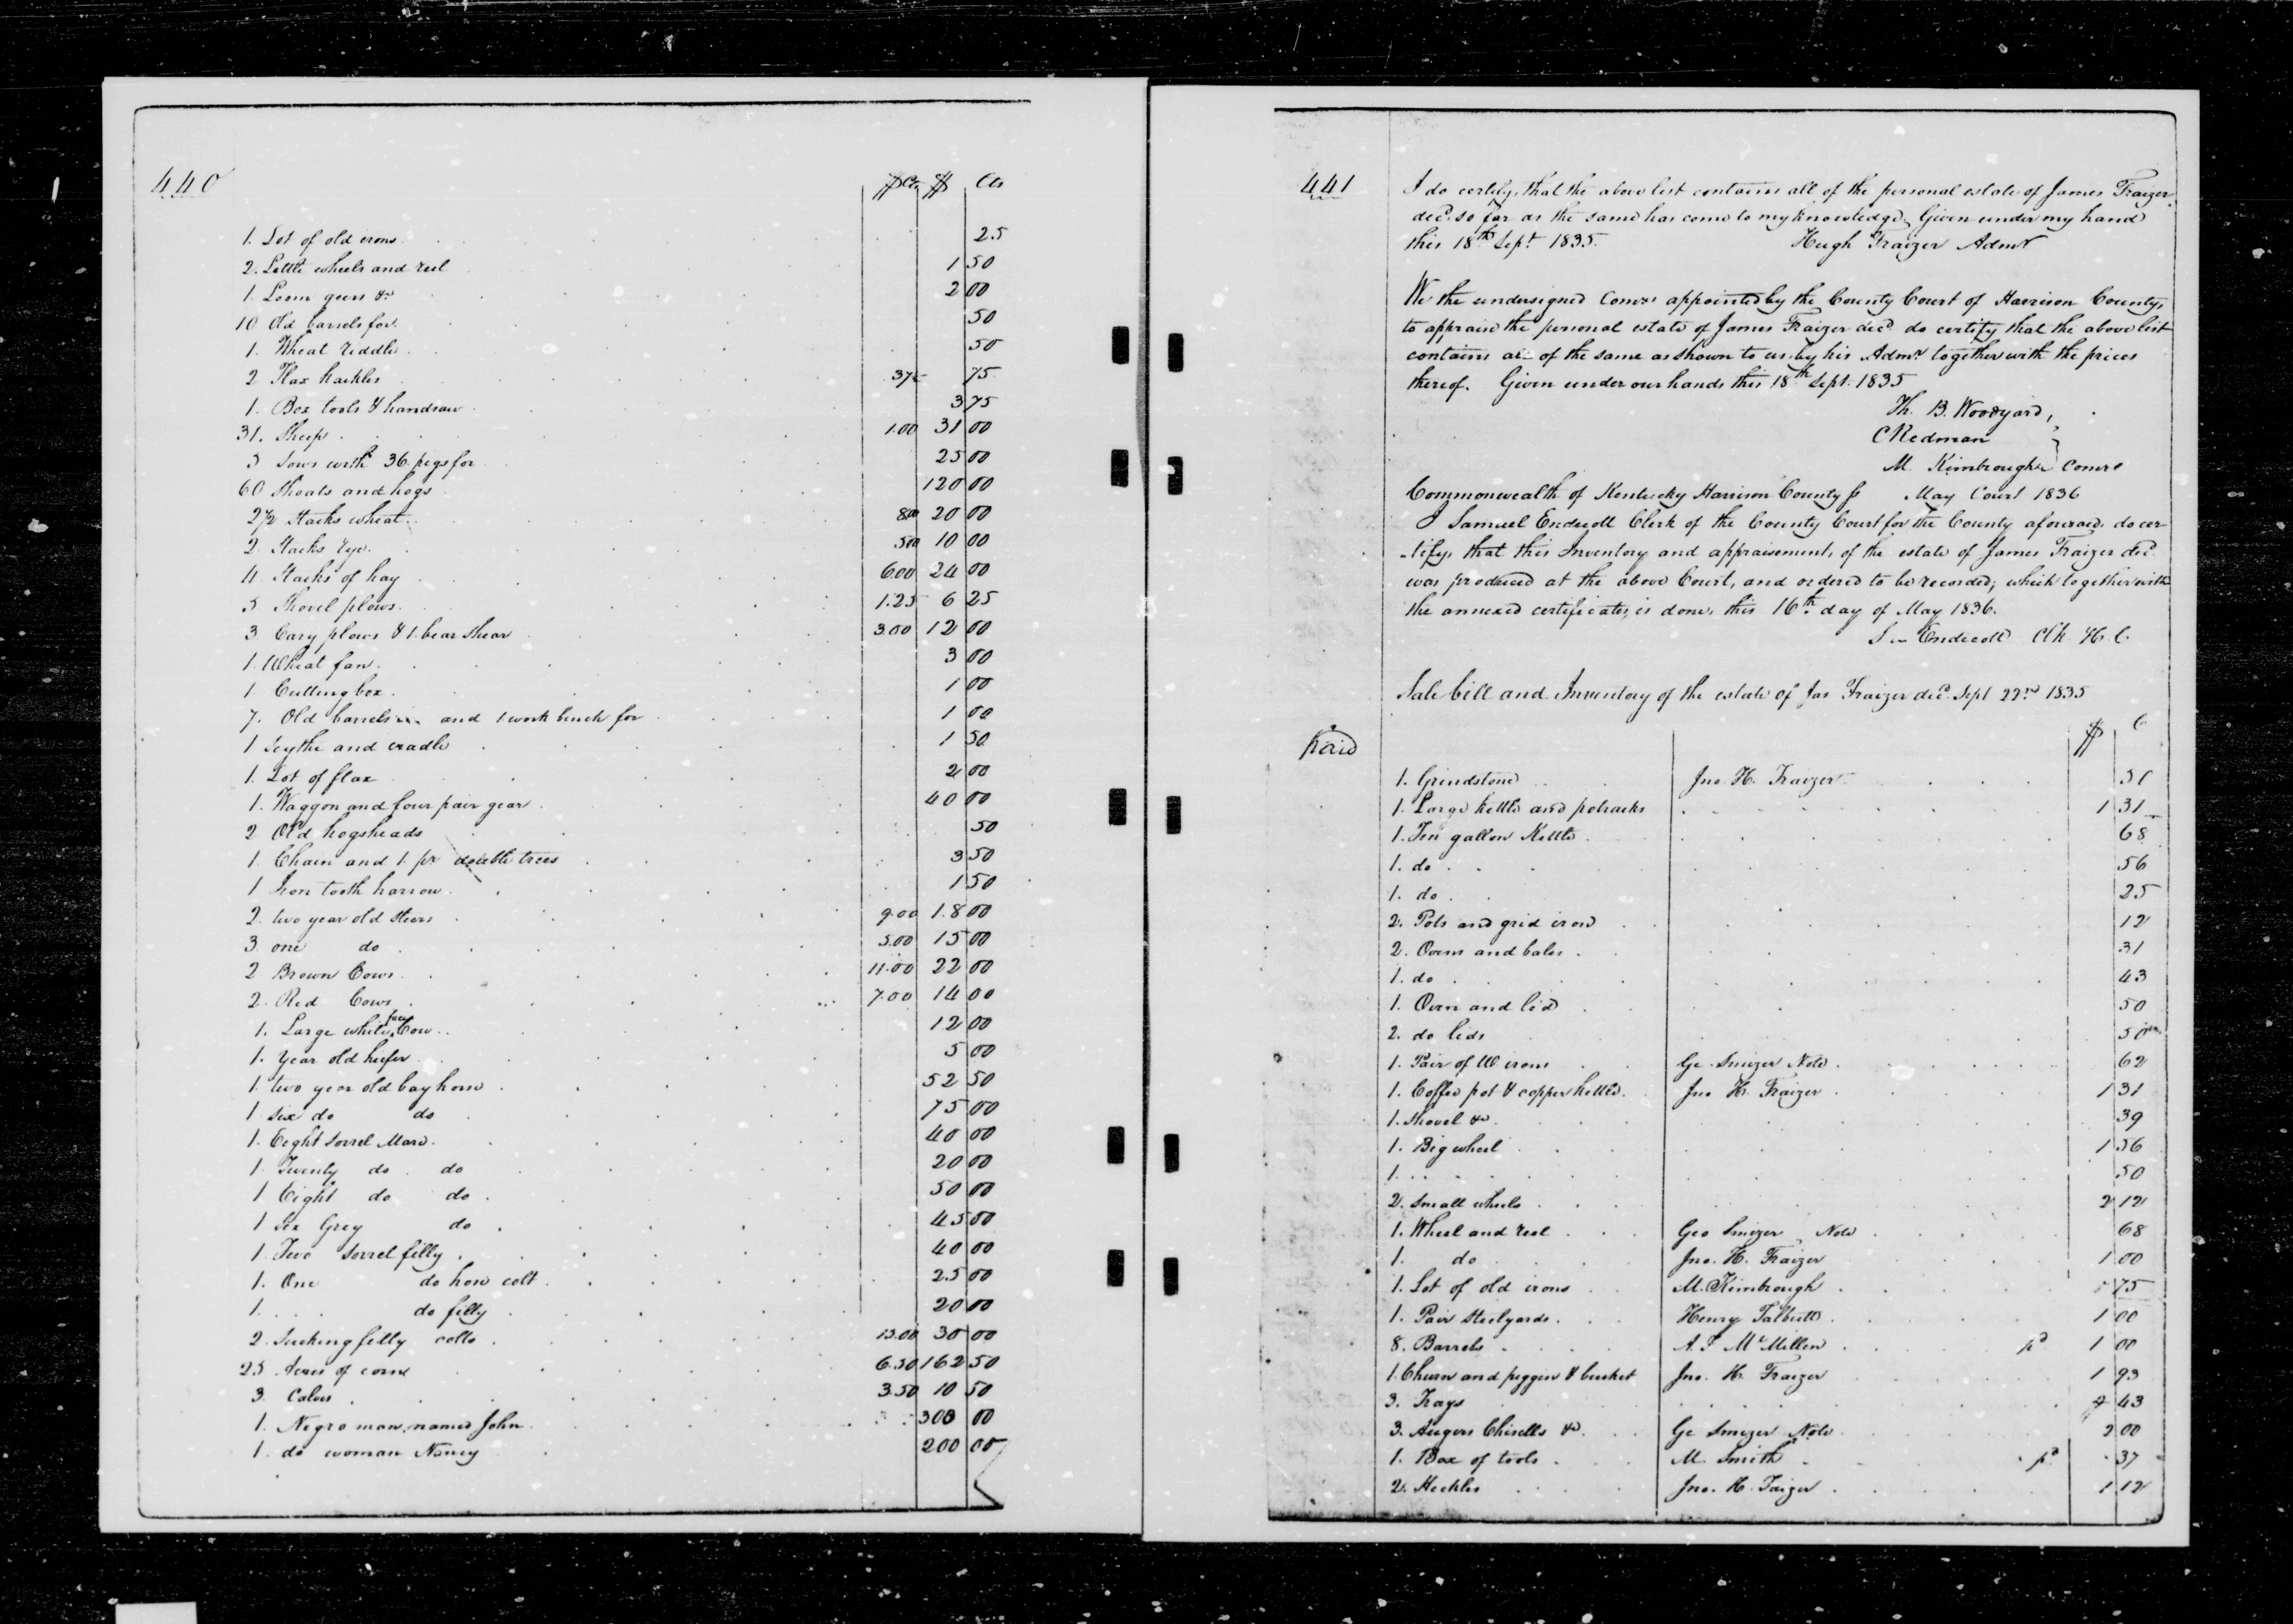 440
$ Cts $ Cts
1. Lot of old irons 25
2. Little wheels and reel 1 50
1. Loom geers &c 2 00
10 Old barrels for 50
1. Wheat riddle 50
2 Flax hackles 37½ 75
1. Box tools & handsaw 3 75
31. Sheep 1.00 31 00
5 Sows with 36 pigs for 25 00
60 Shoats and hogs 120 00
2½ Stacks wheat 8.00 20 00
2 Stacks rye 5.00 10 00
4. Stacks of hay 6.00 24 00
5 Shovel plows 1.25 6 25
3 Cary plows & 1. bear shear 3.00 12 00
1. Wheat fan 3 00
1. Cutting box 1 00
7. Old barrels and 1 work bench for 1 00
1 Scythe and cradle 1 50
1. Lot of flax 2 00
1. Waggon and four pair gear 40 00
2 Old hogsheads 50
1. Chain and 1. pr double trees 3 50
1 Iron tooth harrow 1 50
2. two year old steers 9.00 18 00
3 one do 5.00 15 00
2 Brown Cows 11.00 22 00
2. Red Cows 7.00 14 00
1. Large white face Cow 12 00
1. Year old heifer 5 00
1. two year old bay horse 52 50
1 six do do 75 00
1. Eight sorrel Mare 40 00
1. Twenty do do 20 00
1 Eight do do 50 00
1 Six Grey do 45 00
1. Two sorrel filly 40 00
1. One do horse colt 25 00
1. do filly 20 00
2. Sucking filly colts 15.00 30 00
25 Acres of corn 6.50 162 50
3 Calves 3.50 10 50
1. Negro man, named John 300 00
1. do woman Nancy 200 00
441
I do certify, that the above list contains all of the personal estate of James Fraizer
decd. so far as the same has come to my knowledge, Given under my hand
this 18th Sept 1835. Hugh Fraizer Admr
We the undersigned Comrs appointed by the County Court of Harrison County,
to appraise the personal estate of James Fraizer decd. do certify that the above list
contains all of the same as shown to us by his Admr together with the prices
thereof. Given under our hands this 18th Sept. 1835
Th. B. Woodyard,
C Redman
M. Kimbrough Comrs
Commonwealth of Kentucky Harrison County Sc May Court 1836
I Samuel Endicott Clerk of the County Court for the County aforesaid, do cer-
-tify, that this Inventory and appraisement, of the estate of James Fraizer decd
was produced at the above Court, and ordered to be recorded; which together with
the annexed certificates, is done, this 16th day of May 1836.
S Endicott Clk H. C.
Sale bill and Inventory of the estate of Jas Fraizer decd Sept 22nd 1835
Paid $ C
1. Grindstone Jno. H. Fraizer 51
1. Large kettle and potracks 1 31
1. Ten gallon Kettle 68
1. do 56
1. do 25
2. Pots and grid iron 12
2. Ovens and bales 31
1. do 43
1. Oven and lid 50
2. do lids 50
1. Pair of W irons Ge. Smizer Note 62
1. Coffee pot & copper kettle Jno H. Fraizer 1 31
1. Shovel &c 39
1. Big wheel 1 56
1. 50
2. Small wheels 2 12
1. Wheel and reel Geo Smizer Note 68
1. do Jno. H. Fraizer 1 00
1. Lot of old irons M. Kimbrough 75
1. Pair Steelyards Henry Talbutt 1 00
8. Barrels A. F McMillen pd 1 00
1. Churn and piggin & bucket Jno. H. Fraizer 1 93
3. Trays 43
3. Augers Chisells &c Ge Smizer Note 2 00
1. Box of tools M. Smith pd 37
2. Heckles Jno. H. Faizer 1 12